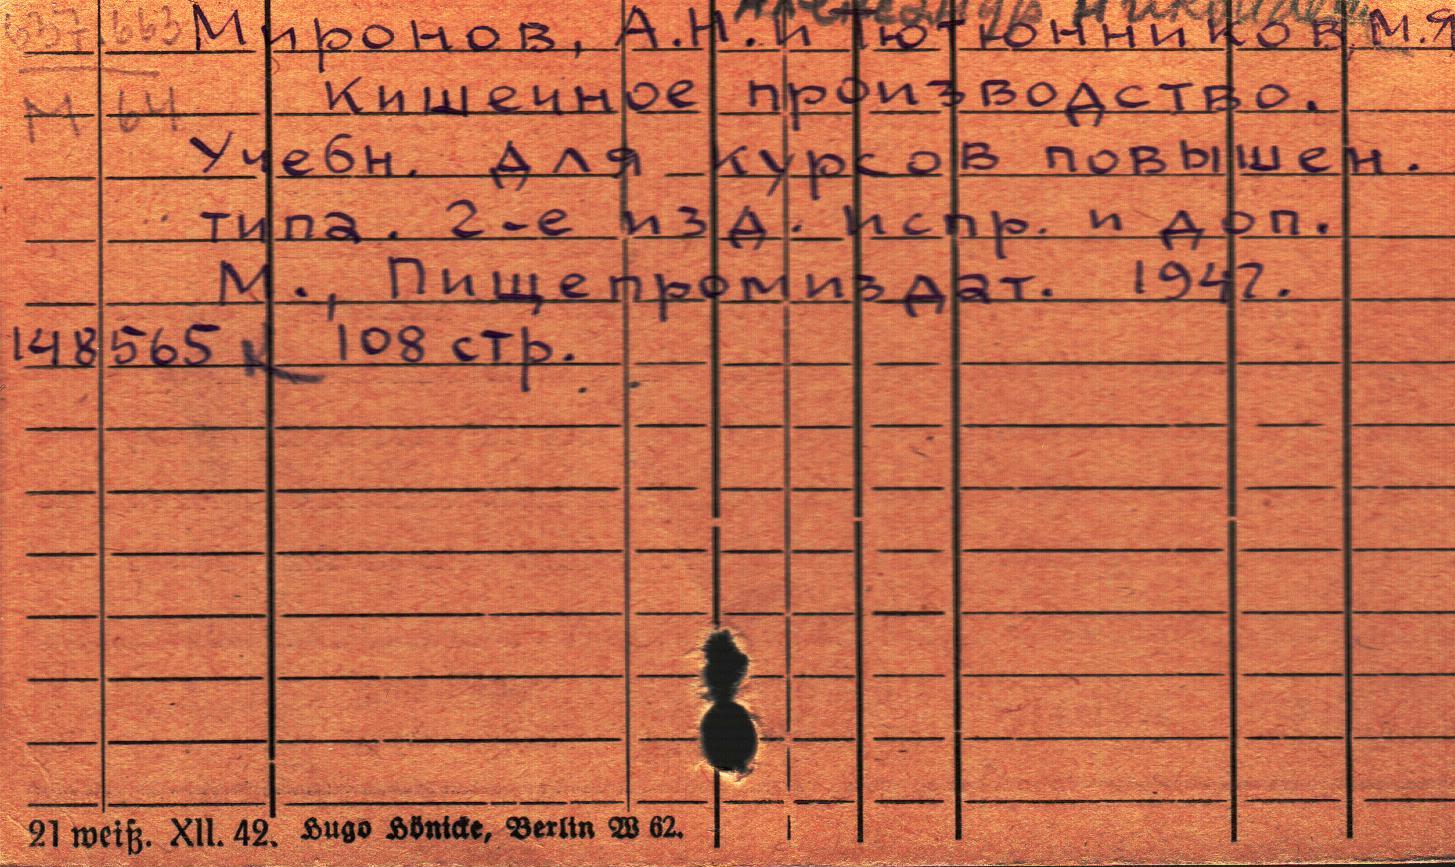 Александр Николаев.
637.663 Миронов, А.Н. и Тютюнников, М.Я
М 64 Кишечное производство.
Учебн. для курсов повышен.
типа. 2-е изд. испр. и доп.
М., Пищепромиздат. 1947.
148565 к 108 стр.
21 weiß. XII. 42. Hugo Hönicke, Berlin W 62.